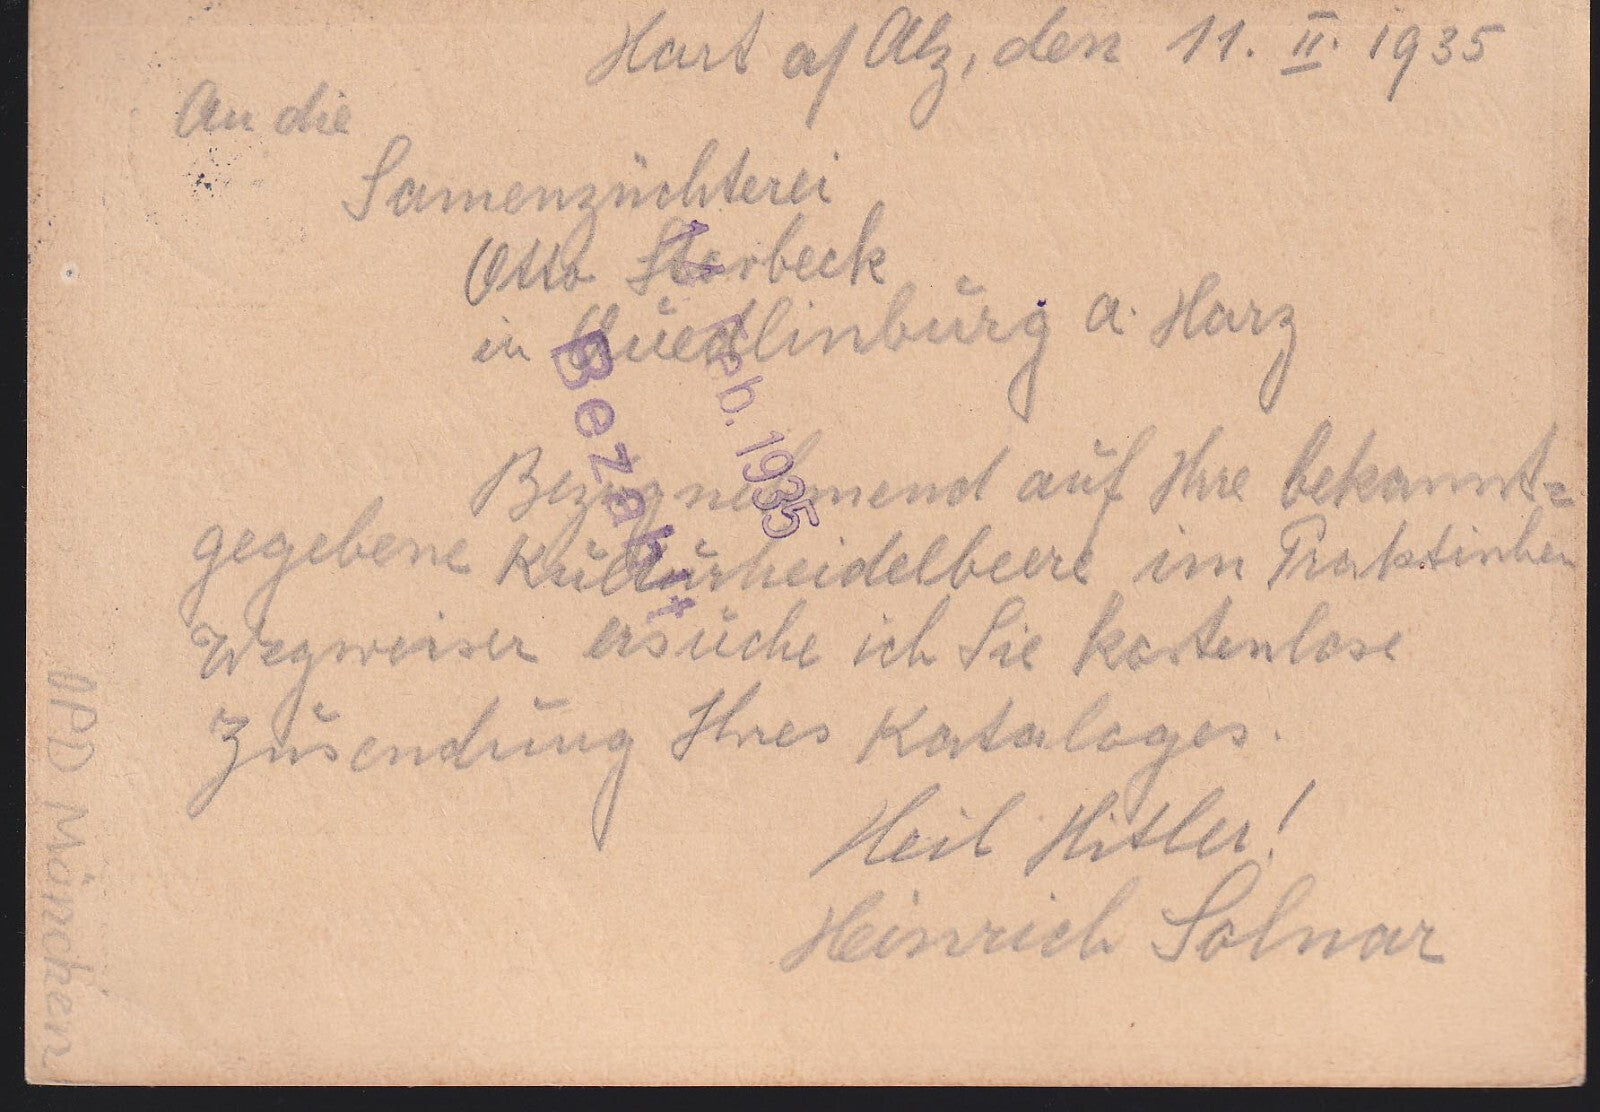 Hart a/ Alz, den 11. II. 1935
An die
Samenzüchterei
Otto Starbeck
in Quedlinburg a. Harz
Bezugnehmend auf Ihre bekannt=
gegebene Kulturheidelbeere im Praktischen
Wegweiser ersuche ich Sie kostenlose
Zusendung Ihres Kataloges.
Heil Hitler!
Heinrich Solnar
Feb. 1935
Bezahlt
OPD München